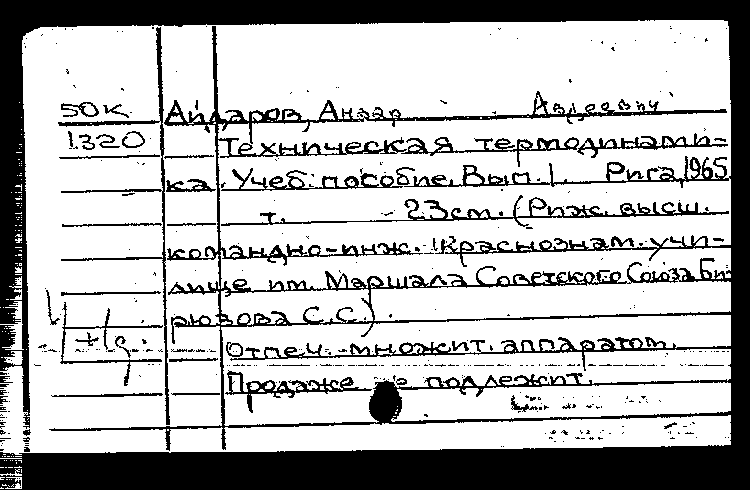 50К Айдаров, Анвар Авдеевич
1320 Техническая термодинами-
ка. Учеб. пособие. Вып. 1. Рига, 1965.
т. - 23 см. (Риж. высш.
командно-инж. Краснознам. учи-
лище им. Маршала Советского Союза Би-
рюзова С.С.).
+1д.
Отпеч. множит. аппаратом.
Продаже не подлежит.